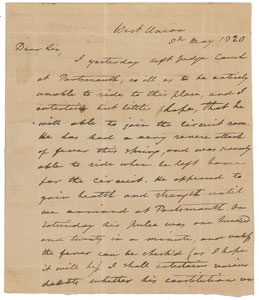 West Union
8th May 1820
Dear Sir,
I yesterday left Judge Couch
at Portsmouth, so ill as to be entirely
unable to ride to this place, and I
entertain but little hope, that he
will able to join the circuit soon.
He has had a very severe attack
of fever this spring, and was scarcely
able to ride when he left home
for the Circuit. He appeared to
gain health and strength until
we arrived at Portsmouth. On
Saturday his pulse was one hundred
and twenty in a minute, and unless
the fever can be check'd (as I hope
it will be) I shall entertain serious
doubts whether his constitution